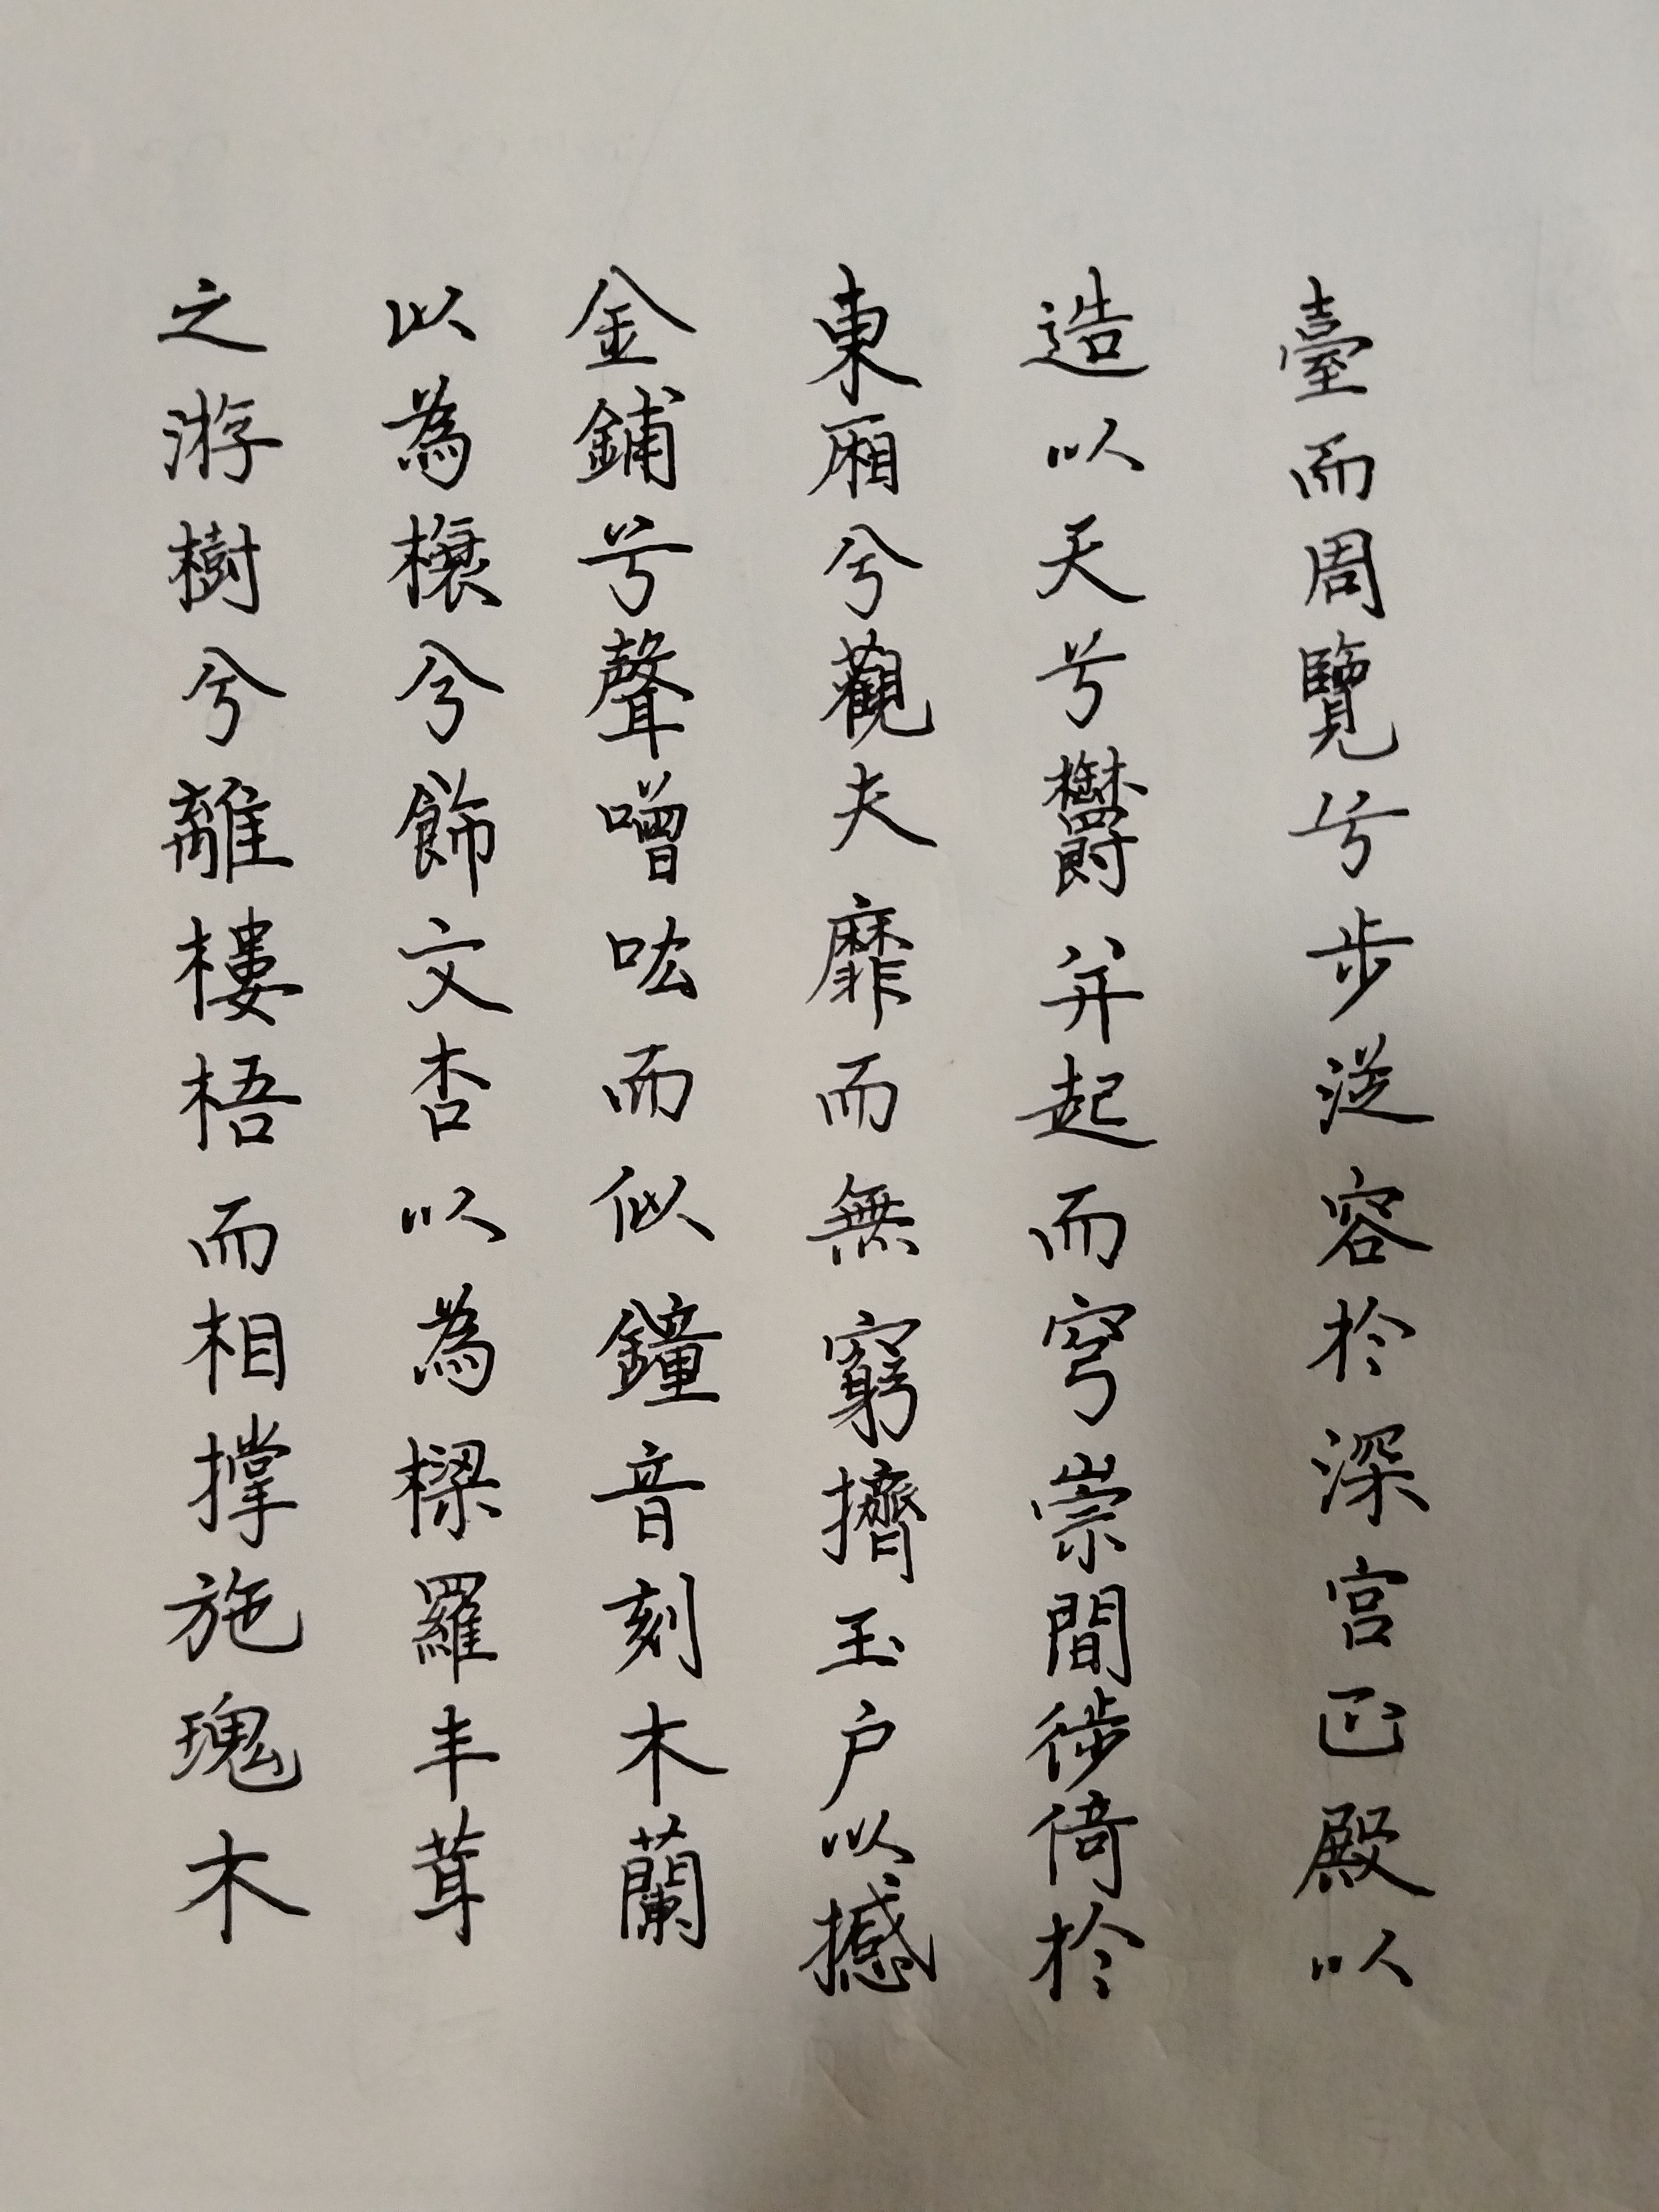 臺而周覽兮步從容於深宮正殿以
造以天兮鬱并起而穹崇間徙倚於
東廂兮觀夫靡靡而無窮擠玉户以撼
金鋪兮聲噌吰而似鐘音刻木蘭
以為榱兮飾文杏以為樑羅丰茸
之游樹兮離樓梧而相撐施瑰木